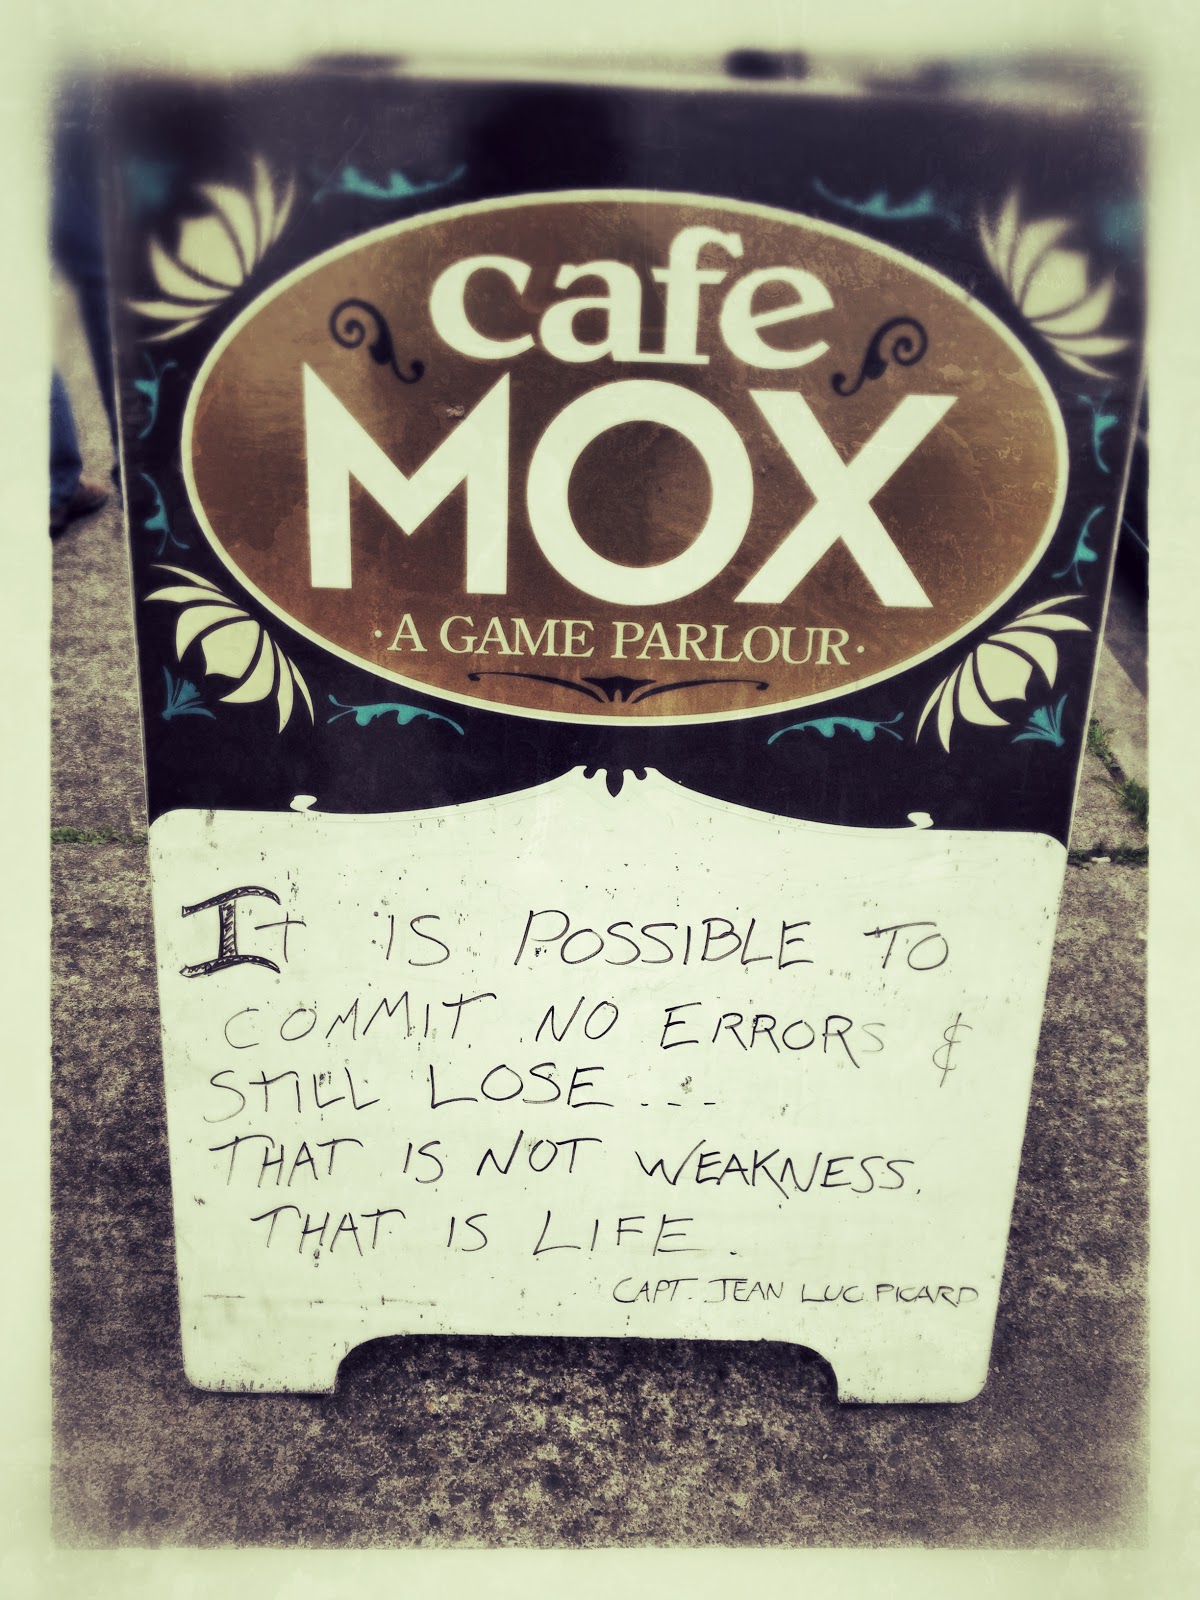 cafe
MOX
·A GAME PARLOUR·
It IS POSSIBLE TO
COMMIT NO ERRORS &
STILL LOSE...
THAT IS NOT WEAKNESS.
THAT IS LIFE.
CAPT. JEAN LUC PICARD